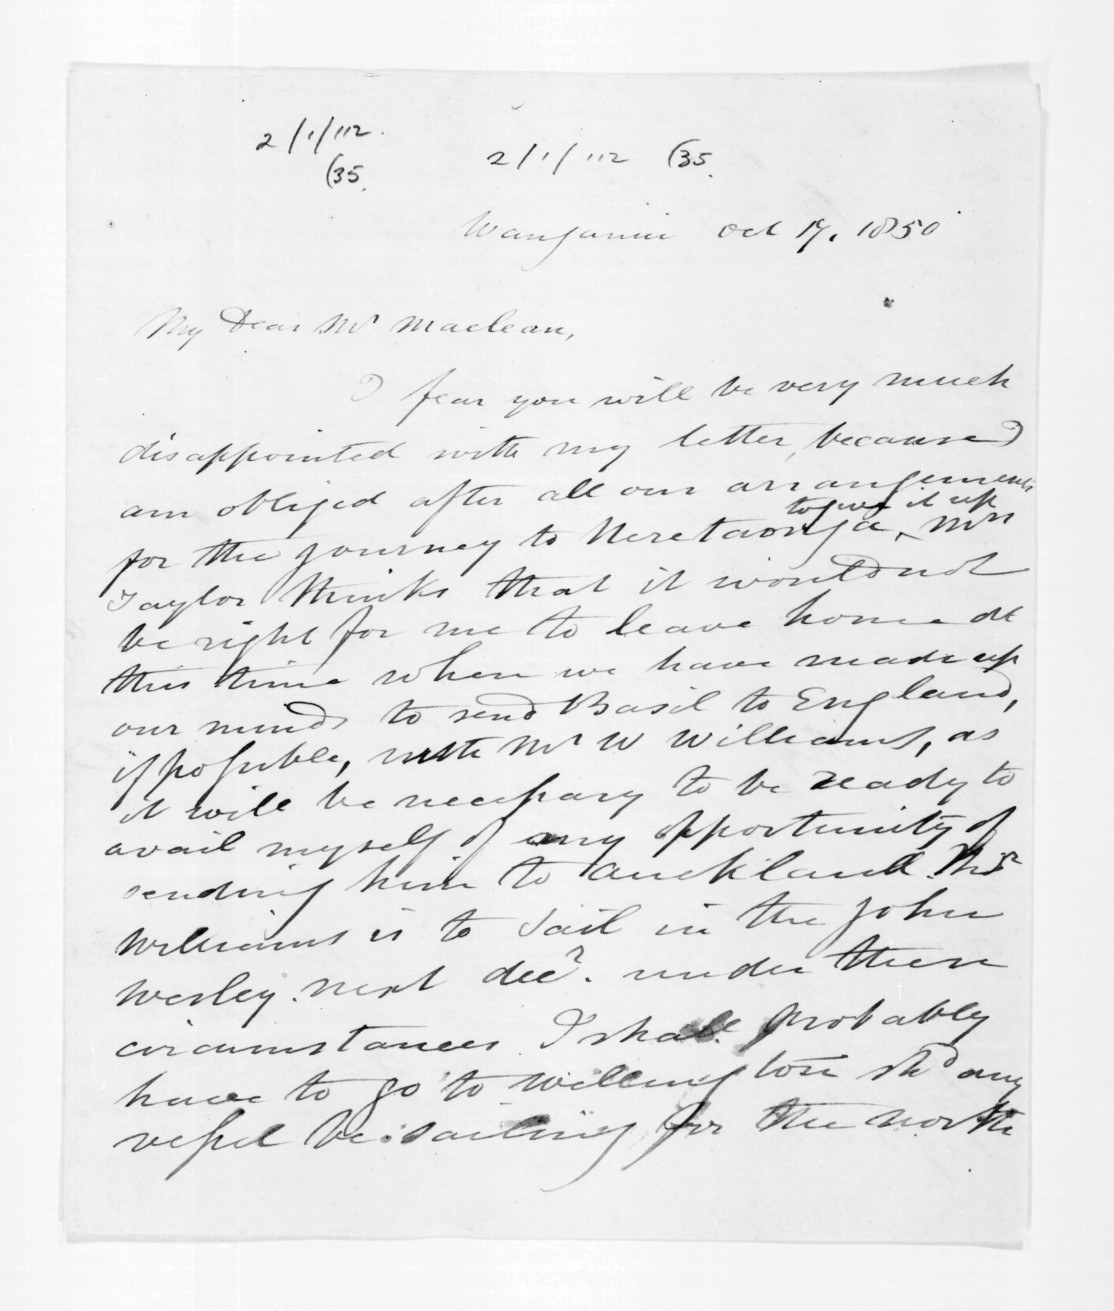 2/1/112.
(35.
2/1/112 (35.
Wanganui Oct 17. 1850
My Dear Mr Maclean,
I fear you will be very much
disappointed with my letter, because I
am obliged after all our arrangements
to give it up
for the journey to Heretaonga, Mrs
Taylor thinks that it would not
be right for me to leave home at
this time when we have made up
our minds to send Basil to England,
if possible, with Mr W Williams, as
it will be necessary to be ready to
avail myself of any opportunity of
sending him to Auckland. Mr
Williams is to sail in the John
Wesley next decr. under these
circumstances I shall probably
have to go to Wellington shd any
vessel be sailing for the north